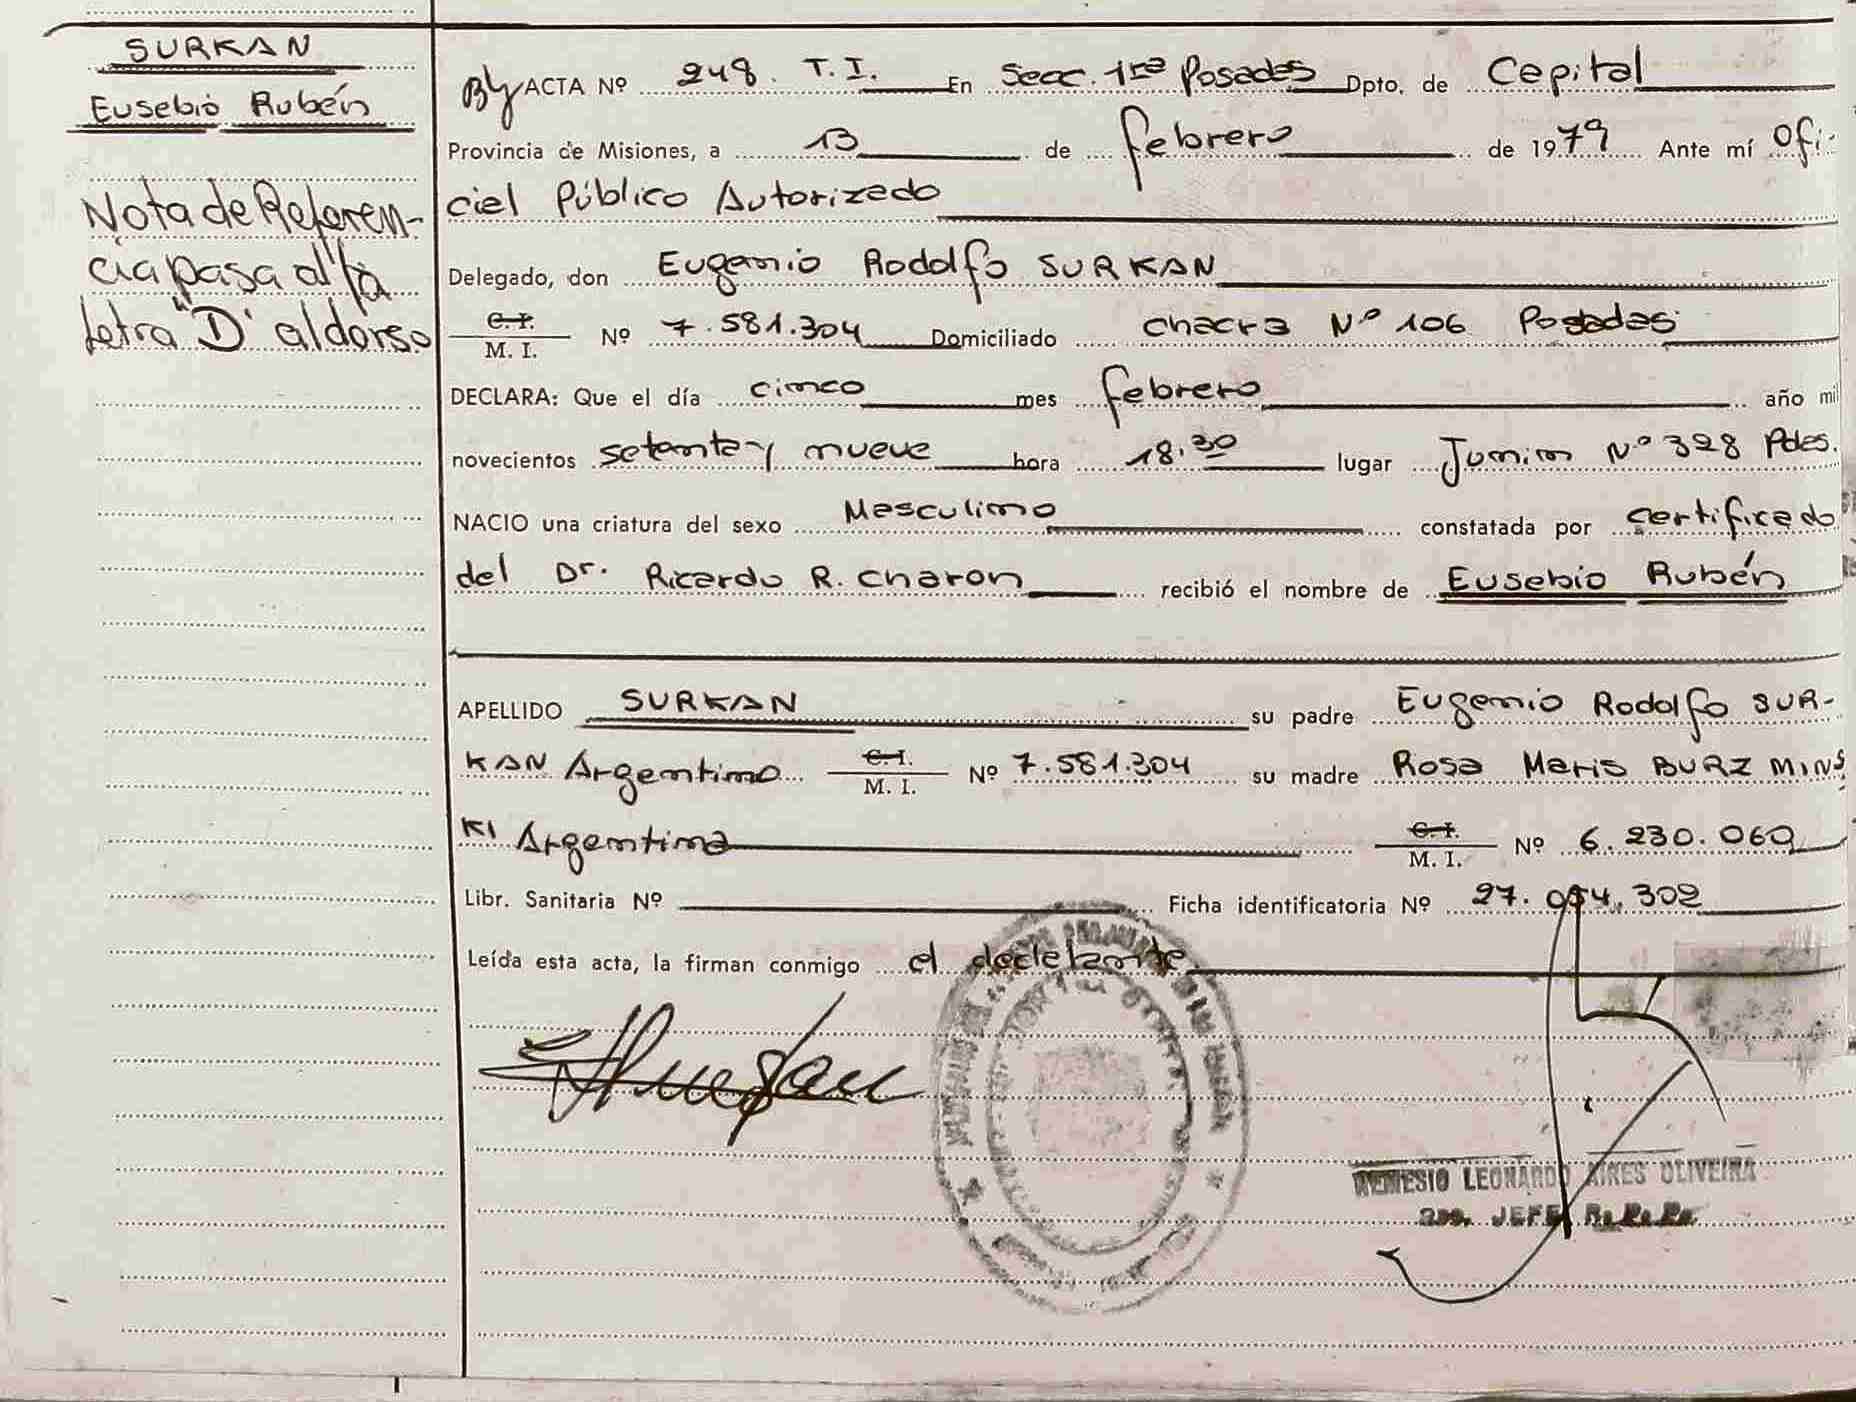 SURKAN
Eusebio Rubén
Nota de Referen-
cia pasa a la
letra "D" al dorso
ACTA Nº 248. T.I. En Secc. 1ra Posadas Dpto. de Capital
Provincia de Misiones, a 13 de febrero de 1979 Ante mí Ofi-
cial Público Autorizado
Delegado, don Eugenio Rodolfo SURKAN
C. I.
M. I. Nº 7.581.304 Domiciliado chacra Nº 106 Posadas
DECLARA: Que el día cinco mes febrero año mil
novecientos setenta y nueve hora 18.30 lugar Junin Nº 328 Pdas.
NACIO una criatura del sexo Masculino constatada por certificado
del Dr. Ricardo R. Charon recibió el nombre de Eusebio Rubén
APELLIDO SURKAN su padre Eugenio Rodolfo SUR-
KAN Argentino C. I. M. I. Nº 7.581.304 su madre Rosa Maria BURZMINS
KI Argentina C. I. M. I. Nº 6.230.060
Libr. Sanitaria Nº Ficha identificatoria Nº 27.054.302
Leída esta acta, la firman conmigo el declarante
NEMESIO LEONARDO AIRES OLIVEIRA
JEFE R. P. P.